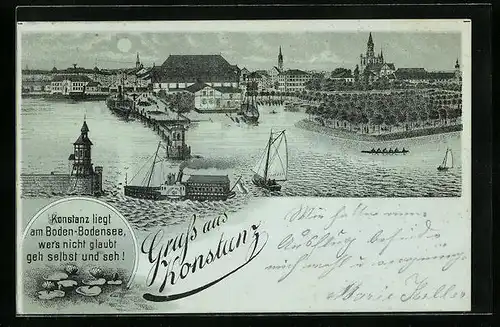 Konstanz liegt
am Boden-Bodensee,
wer's nicht glaubt
geh selbst und seh!
Gruß aus
Konstanz
Ausflug
mich wohl u.
Marie Keller